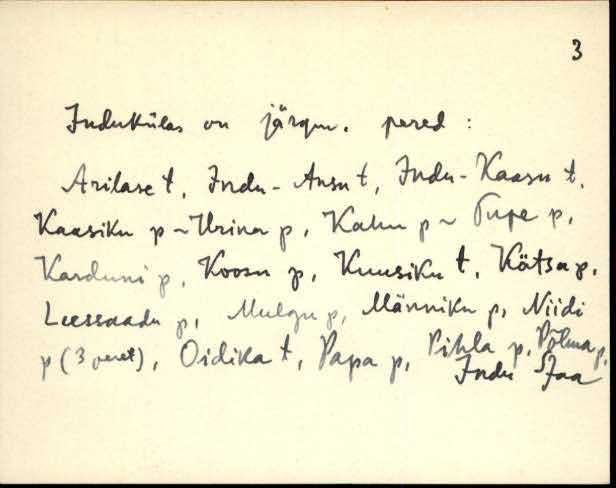 3
Indukülas on järgm. pered :
Arilase t, Indu-Ansu t, Indu-Kaasu t,
Kaasiku p ~ Urina p, Kahu p ~ Tupe p,
Karduni p, Koosu p, Kuusiku t, Kätsa p,
Leessaadu p, Mulgu p, Männiku p, Niidi
p (3 peret), Oidika t, Papa p, Pihla p, Põlma p,
Indu Jaa